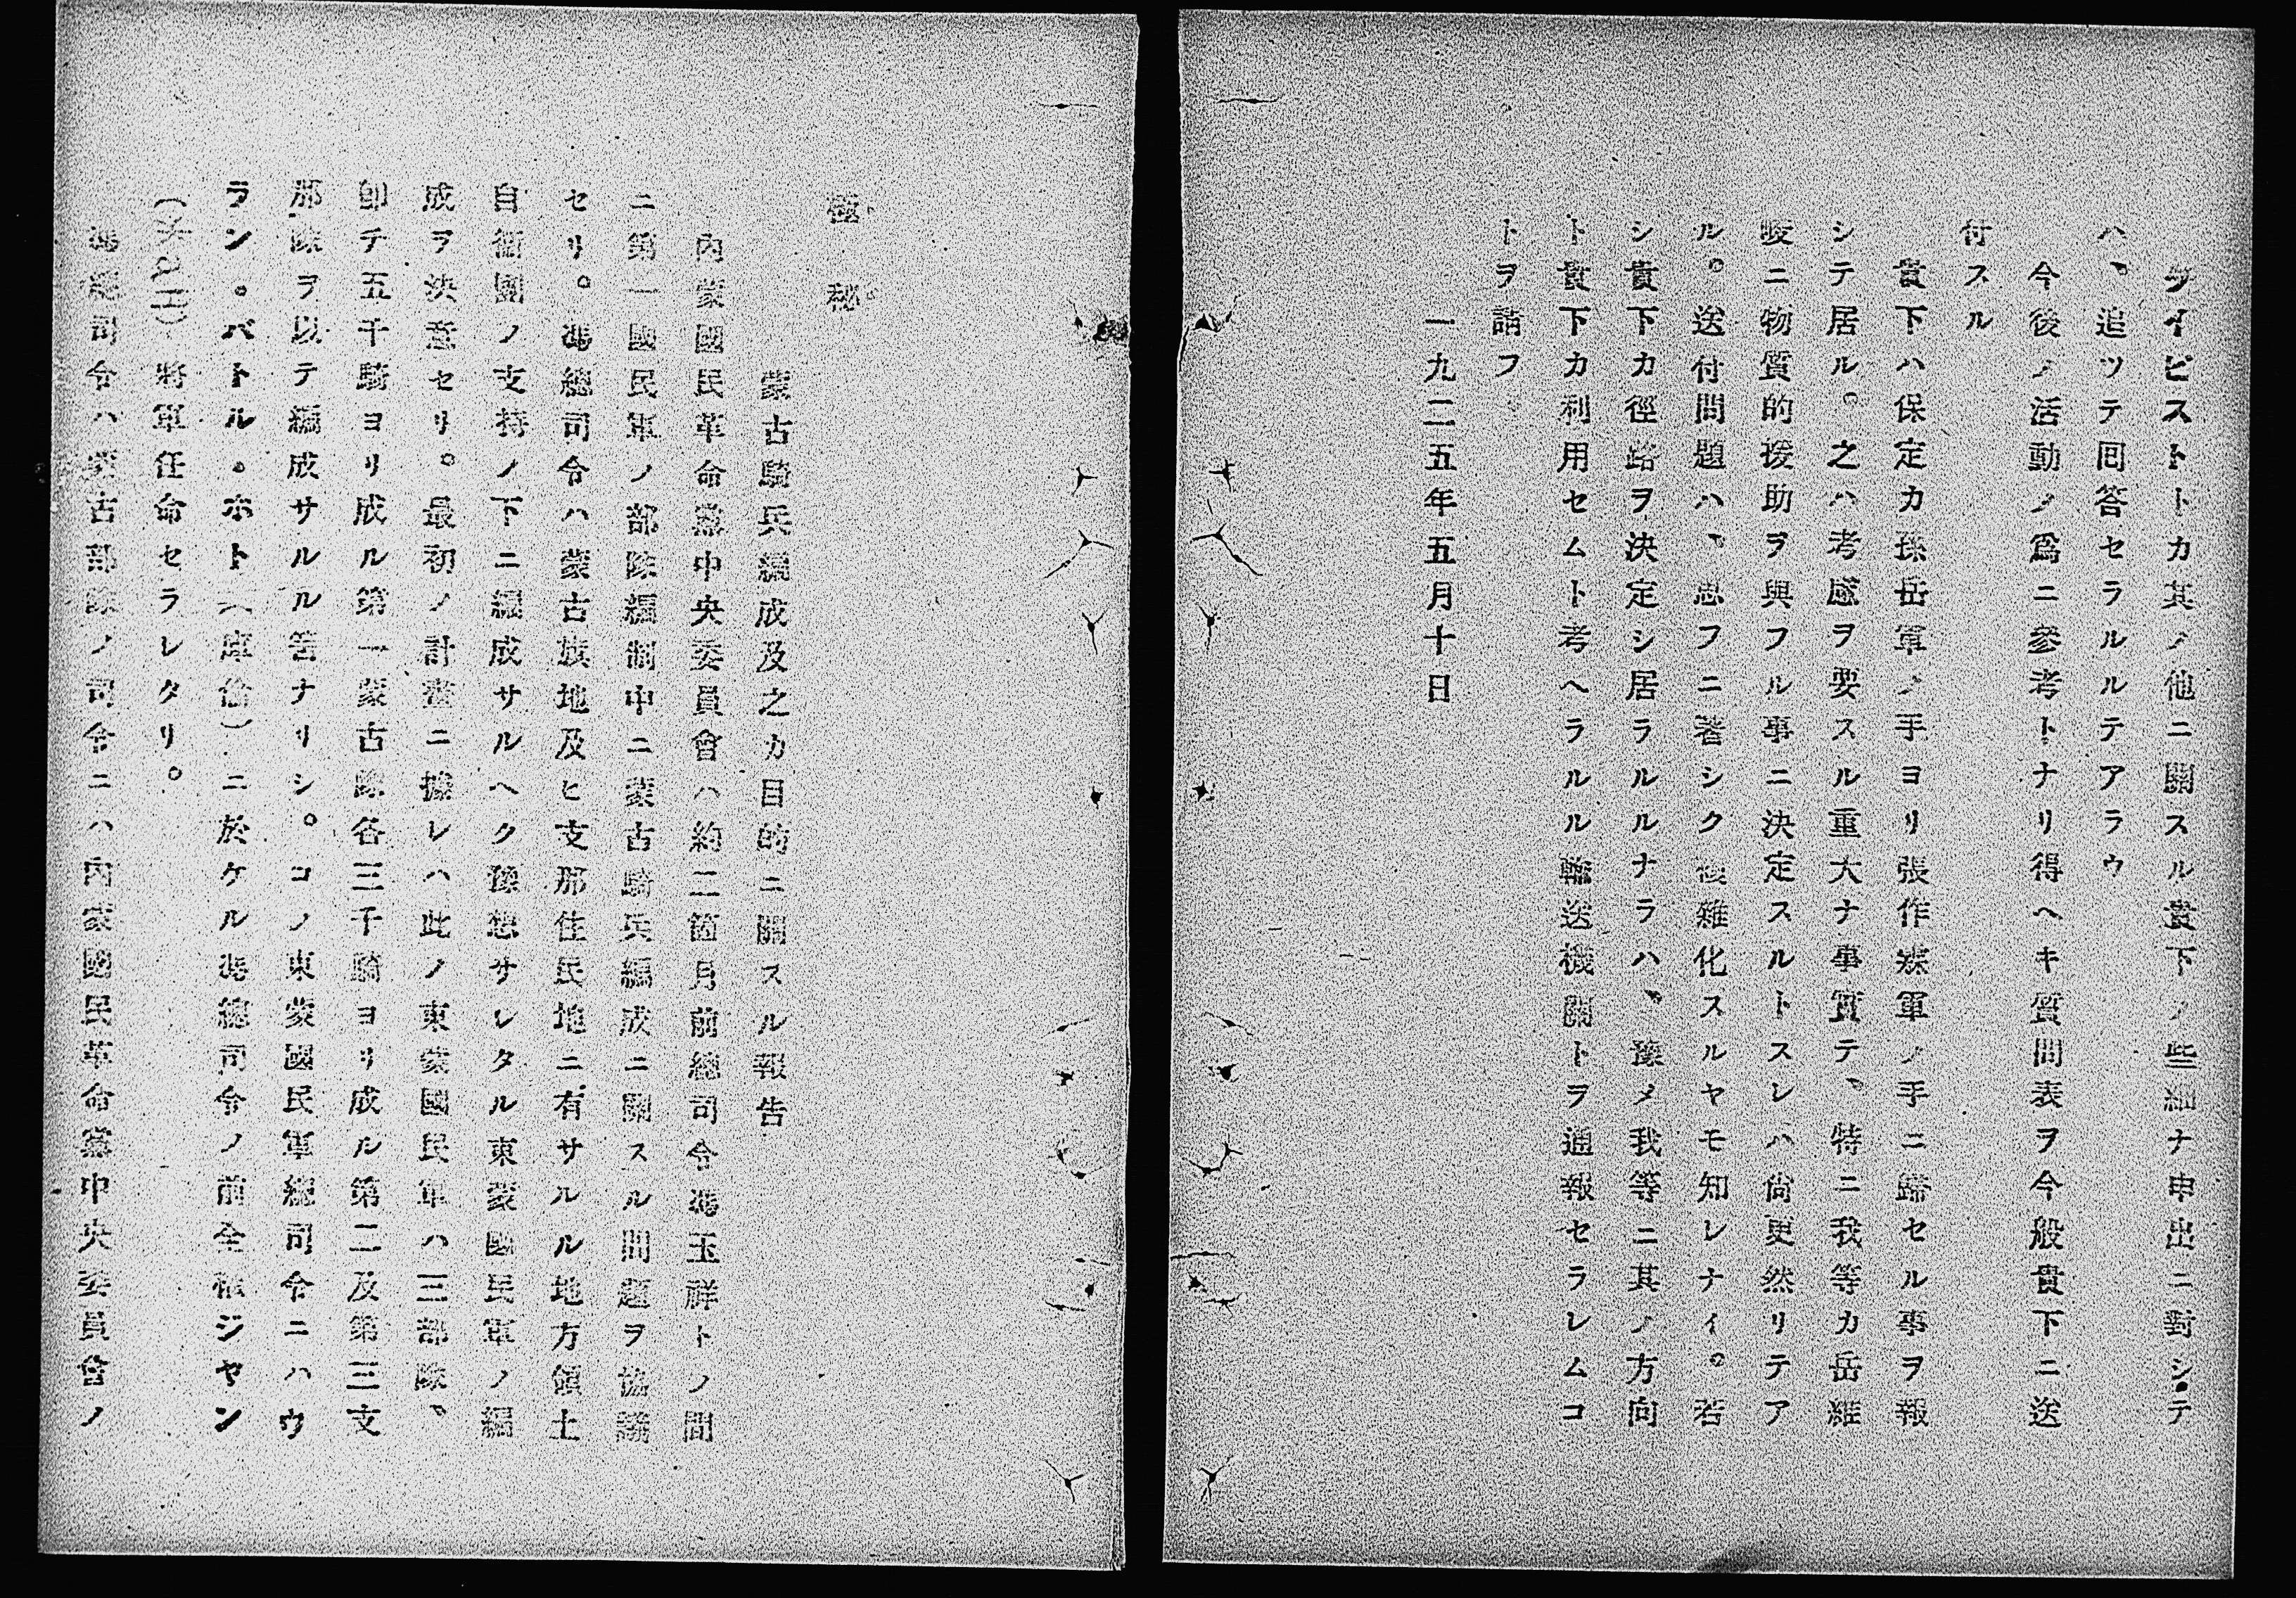 タイピストトカ其ノ他ニ關スル貴下ノ些細ナ申出ニ對シテ
ハ、追ツテ囘答セラルルテアラウ
今後ノ活動ノ爲ニ參考トナリ得ヘキ質問表ヲ今般貴下ニ送
付スル
貴下ハ保定カ孫岳軍ノ手ヨリ張作霖軍ノ手ニ歸セル事ヲ報
シテ居ル。之ハ考慮ヲ要スル重大ナ事實テ、特ニ我等カ岳維
峻ニ物質的援助ヲ與フル事ニ決定スルトスレハ尙更然リテア
ル。送付問題ハ、思フニ著シク複雜化スルヤモ知レナイ。若
シ貴下カ徑路ヲ決定シ居ラルルナラハ、豫メ我等ニ其ノ方向
ト貴下カ利用セムト考ヘラルル輸送機關トヲ通報セラレムコ
トヲ請フ
一九二五年五月十日
極秘
蒙古騎兵編成及之カ目的ニ關スル報告
內蒙國民革命黨中央委員會ハ約二箇月前總司令馮玉祥トノ間
ニ第一國民軍ノ部隊編制中ニ蒙古騎兵編成ニ關スル問題ヲ協議
セリ。馮總司令ハ蒙古族地及ヒ支那住民地ニ有サルル地方領土
自衞團ノ支持ノ下ニ編成サルヘク豫想サレタル東蒙國民軍ノ編
成ヲ決意セリ。最初ノ計畫ニ據レハ此ノ東蒙國民軍ハ三部隊、
卽チ五千騎ヨリ成ル第一蒙古隊各三千騎ヨリ成ル第二及第三支
那隊ヲ以テ編成サルル筈ナリシ。コノ東蒙國民軍總司令ニハウ
ラン。バトル。ホト(庫倫)ニ於ケル馮總司令ノ前全權ジヤン
將軍任命セラレタリ。
馮總司令ハ蒙古部隊ノ司令ニハ內蒙國民革命黨中央委員會ノ